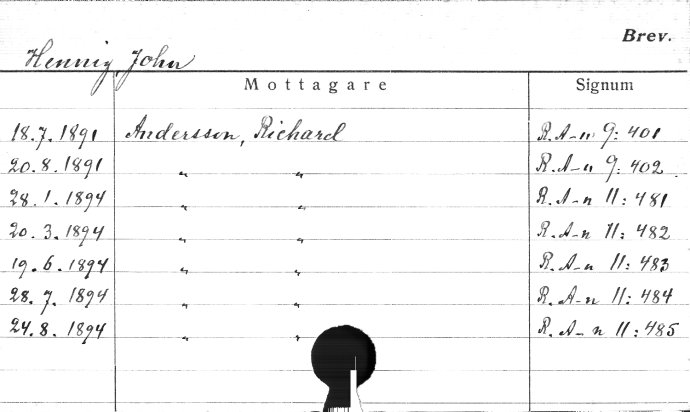 Brev.
Hennig, John
Mottagare Signum
18.7.1891 Andersson, Richard R. A-n 9: 401
20.8.1891 " " R. A-n 9: 402
28.1.1894 " " R. A-n 11: 481
20.3.1894 " " R. A-n 11: 482
19.6.1894 " " R. A-n 11: 483
28.7.1894 " " R. A-n 11: 484
24.8.1894 " " R. A-n 11: 485